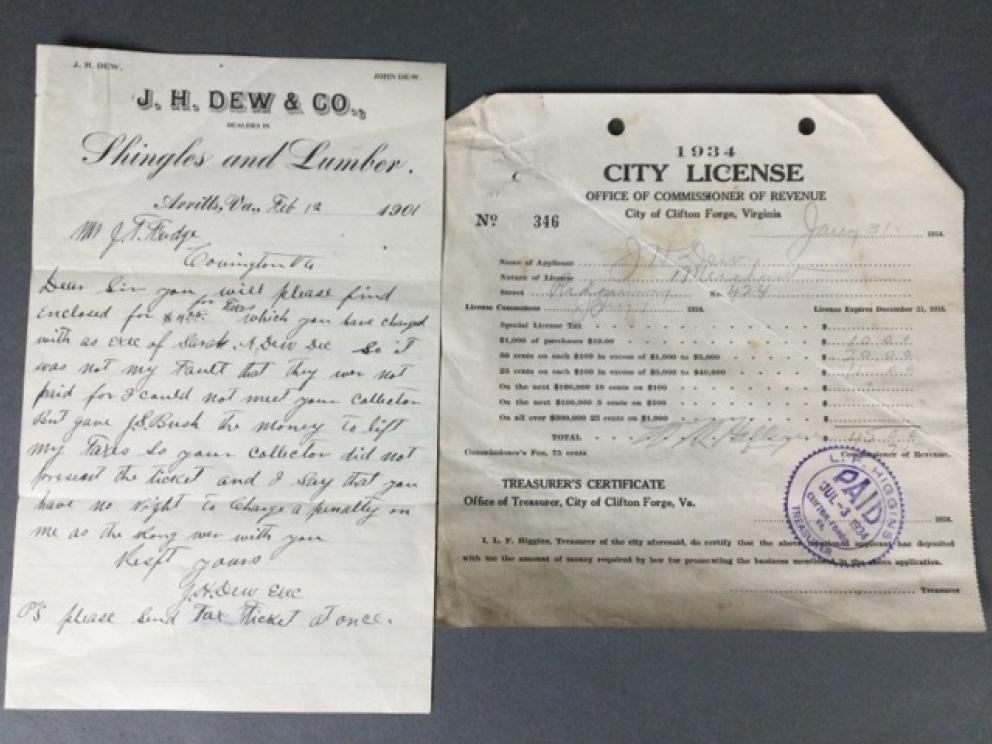 J. H. DEW.
JOHN DEW.
J. H. DEW & CO.,
DEALERS IN
Shingles and Lumber.
Arritts, Va., Feb 12 1901
Mr J. T. Fudge
Covington Va
Dear Sir you will please find
enclosed for for Taxes which you have charged
with as exec of Sarah A, Dew Dec So it
was not my Fault that they wer not
paid for I could not meet your collector
But gave J.S. Bush the money to lift
my Taxes So your collector did not
present the ticket and I say that you
have no right to Charge a penalty on
me as the rong wer with you
Respt yours
J.H. Dew Exc
PS please send Tax Ticket at once.
1934
CITY LICENSE
OFFICE OF COMMISSIONER OF REVENUE
City of Clifton Forge, Virginia
No 346
31 1934.
Name of Applicant J H Dew
Nature of License Merchant
Street Ridgeway No. 424
License Commences License Expires December 31, 1934.
Special License Tax $
$1,000 of purchases $10.00 $
50 cents on each $100 in excess of $1,000 to $5,000 $
25 cents on each $100 in excess of $5,000 to $40,000 $
On the next $100,000 10 cents on $100 $
On the next $100,000 5 cents on $200 $
On all over $200,000 25 cents on $1,000 $
TOTAL $
Commissioner's Fee, 75 cents Commissioner of Revenue.
TREASURER'S CERTIFICATE
Office of Treasurer, City of Clifton Forge, Va.
1934.
I, L. F. Higgins, Treasurer of the city aforesaid, do certify that the above mentioned applicant has deposited
with me the amount of money required by law for prosecuting the business mentioned in the above application.
Treasurer
L. F. HIGGINS
PAID
JUL -3 1934
CLIFTON FORGE
VA.
TREASURER